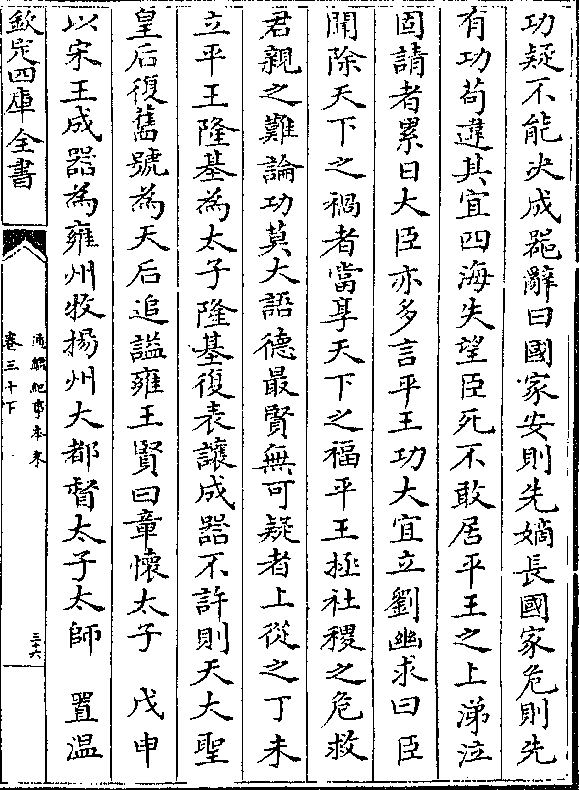 功疑不能決成器辭曰國家安則先嫡長國家危則先
有功苟違其宜四海失望臣死不敢居平王之上涕泣
固請者累日大臣亦多言平王功大宜立劉幽求曰臣
聞除天下之禍者當享天下之福平王拯社稷之危救
君親之難論功莫大語德最賢無可疑者上從之丁未
立平王隆基為太子隆基復表讓成器不許則天大聖
皇后復舊號為天后追諡雍王賢曰章懷太子　戊申
以宋王成器為雍州牧揚州大都督太子太師　置温
欽定四庫全書
通鑑紀事本末
卷三十下
三六